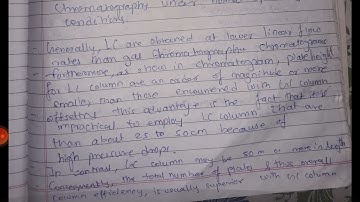 Chromatography under
conditions.
- Generally, LC are obtained at lower linear flow
rates than gas chromatography chromatograms
- furthermore, as show in chromatogram, plate height
for LC column are an order of magnitude or more
smaller than those encountered with GC column
- offsetting this advantage is the fact that it is
impractical to employ LC column that are
than about 25 to 50cm because of
high pressure drops.
In contrast, GC column may be 50m or more in length
Consequently, the total number of plates & thus overall
column efficiency, is usually superior with GC column